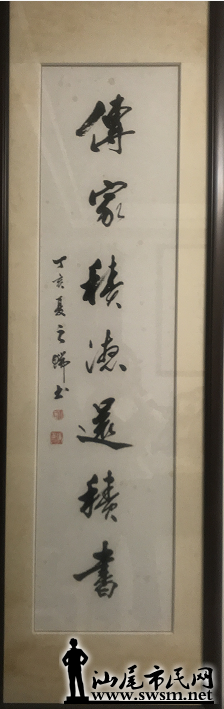 傳家積德還積書
丁亥夏之瑞书
汕尾市民网
www.swsm.net